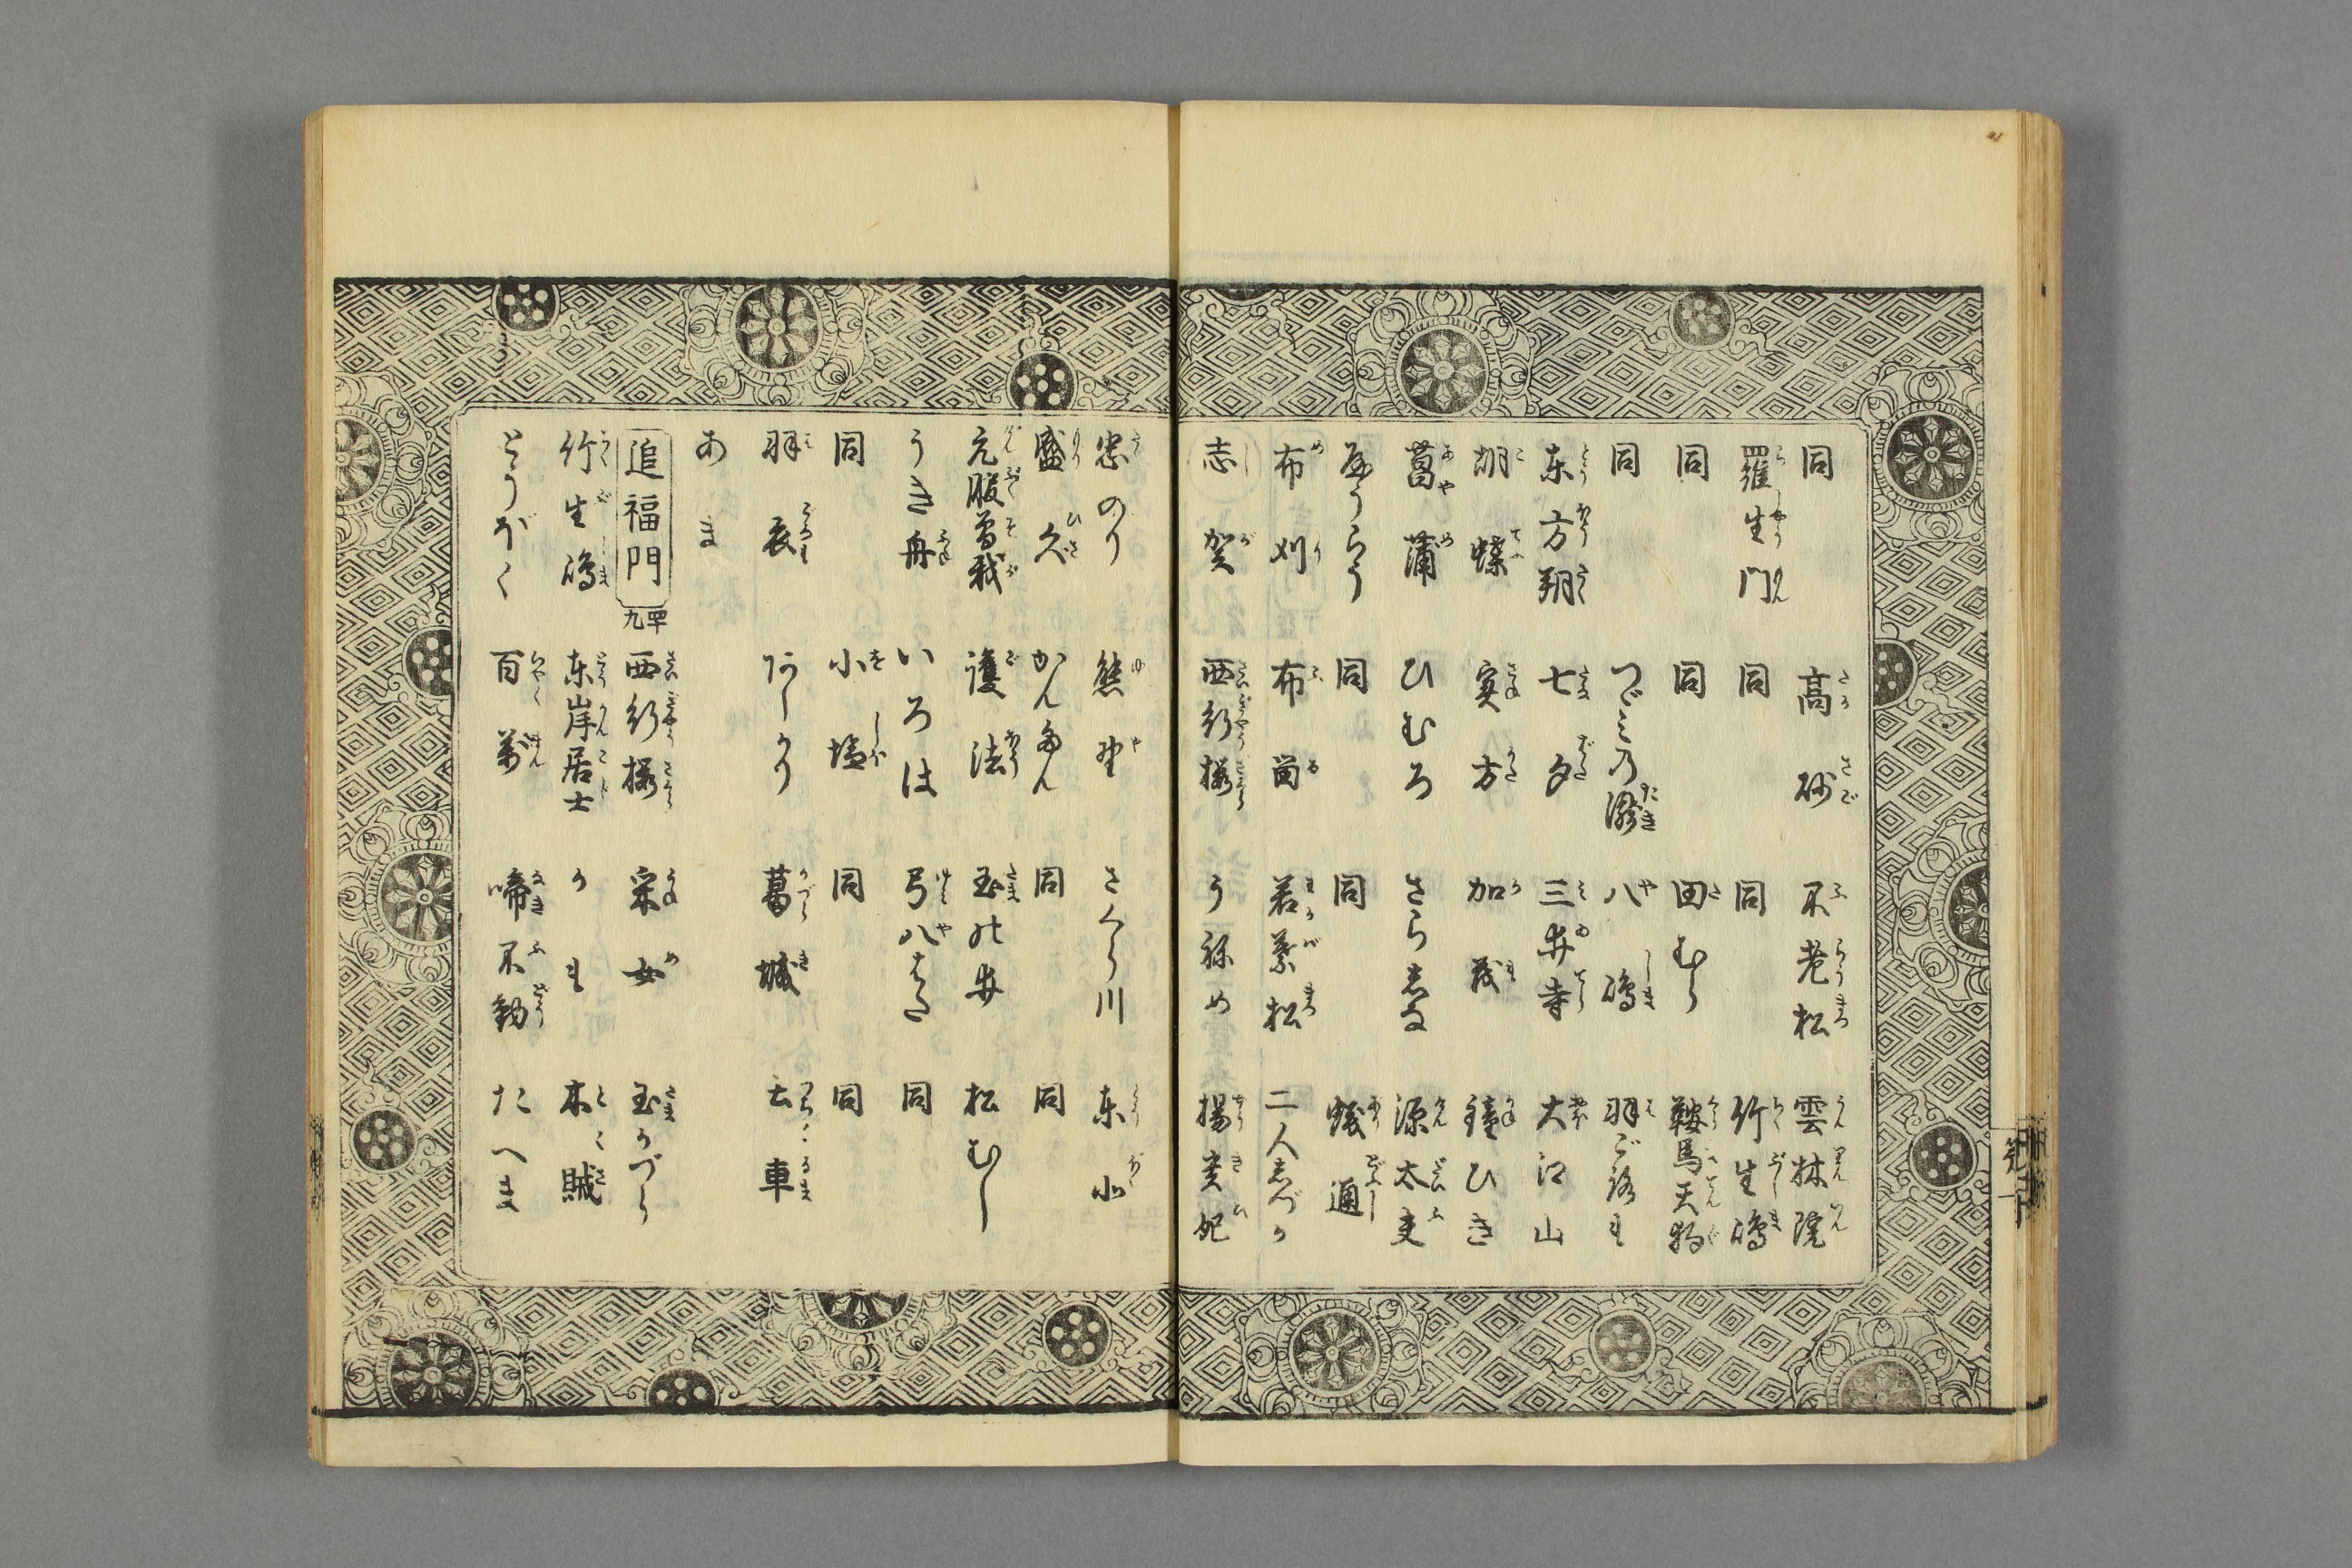 同　高砂　不老松　雲林院
羅生門　同　同　竹生嶋
同　同　田むら　鞍馬天狗
同　つゞみの瀧　八嶋　羽ごろも
東方朔　七夕　三井寺　大江山
胡蝶　実方　加茂　鐘ひき
菖蒲　ひむろ　さらしな　源太夫
同　同　蟻通
布刈　布留　若葉松　二人しづか
志賀　西行桜　うねめ　楊貴妃
忠のり　熊野　さくら川　東北
盛久　かんたん　同　同
元服曽我　護法　玉の井　松むし
うき舟　いろは　弓八はた　同
同　小塩　同　同
羽衣　あしかり　葛城　土車
あま
追福門　四十九
西行桜　采女　玉かづら
竹生嶋　東岸居士　かも　木賊
とうぼく　百萬　啼不動　たへま